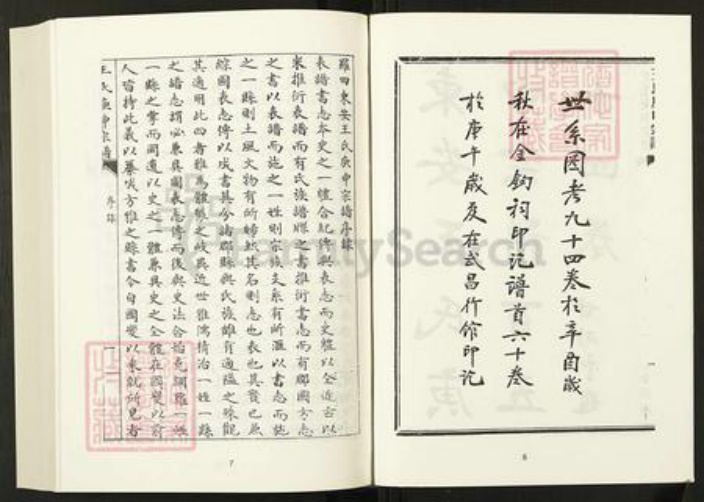 世系圖考九十四卷於辛酉歲
秋在金鈎祠印訖譜首六十卷
於庚午歲夏在武昌行館印訖
6
羅田東安王氏庚申宗譜序錄
表譜書志本史之一體合紀傳與表志而史體以全近古以
來推衍表譜而有氏族譜牒之書推衍書志而有郡國方志
之書以表譜而施之一姓則宗族支系有所滙以書志而施
之一縣則土風文物有所歸紙其名則志也表也其實已兼
綜圖表志傳以成書其分諸郡縣與氏族雖有通隘之殊觀
其適用此四者雅馬體製之攸異近世雅鴻情治一姓一縣
之譜志謂必兼具圖表志傳而後與史法合
一縣之掌而周遍以史之一體兼具史之全體在國變以前
人皆持此義以纂成方雅之縣書今自國變以來就所見者
王氏庚申宗譜
序錄
一
7
FamilySearch